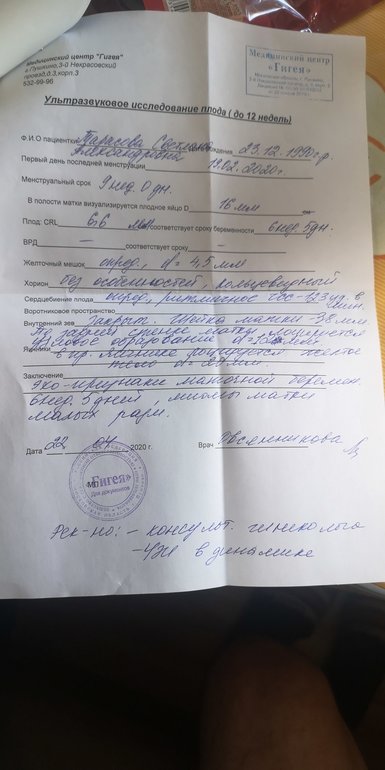 Медицинский центр "Гигея"
г.Пушкино,3-й Некрасовский
проезд,д.3,корп.3
532-99-96
Медицинский центр
«Гигея»
Ультразвуковое исследование плода ( до 12 недель)
Ф.И.О пациентки Тарасова Светлана рождения 23.12.1990 г.р.
Александровна
Первый день последней менструации 19.02.2020 г.
Менструальный срок 9 нед. 0 дн.
В полости матки визуализируется плодное яйцо D 16 мм
Плод: CRL 6,6 мм соответствует сроку беременности 6 нед 5 дн.
ВРД — соответствует сроку —
Желточный мешок опред., d = 4,5 мм
Хорион без особенностей, кольцевидный
Сердцебиение плода опред., ритмичное ЧСС - 123 уд. в мин.
Воротниковое пространство
Внутренний зев Закрыт. Шейка матки - 38 мм.
По задней стенке матки лоцируется
узловое образование d =
Яичники в пр. яичнике лоцируется желтое
тело d =
Заключение
Эхо-признаки маточной беремен.
6 нед. 5 дней, миомы матки
малых разм.
Дата 22 04 2020 г. Врач Овсянникова
«Гигея»
Для документов
Рек-но: - консульт. гинеколога
- УЗИ в динамике